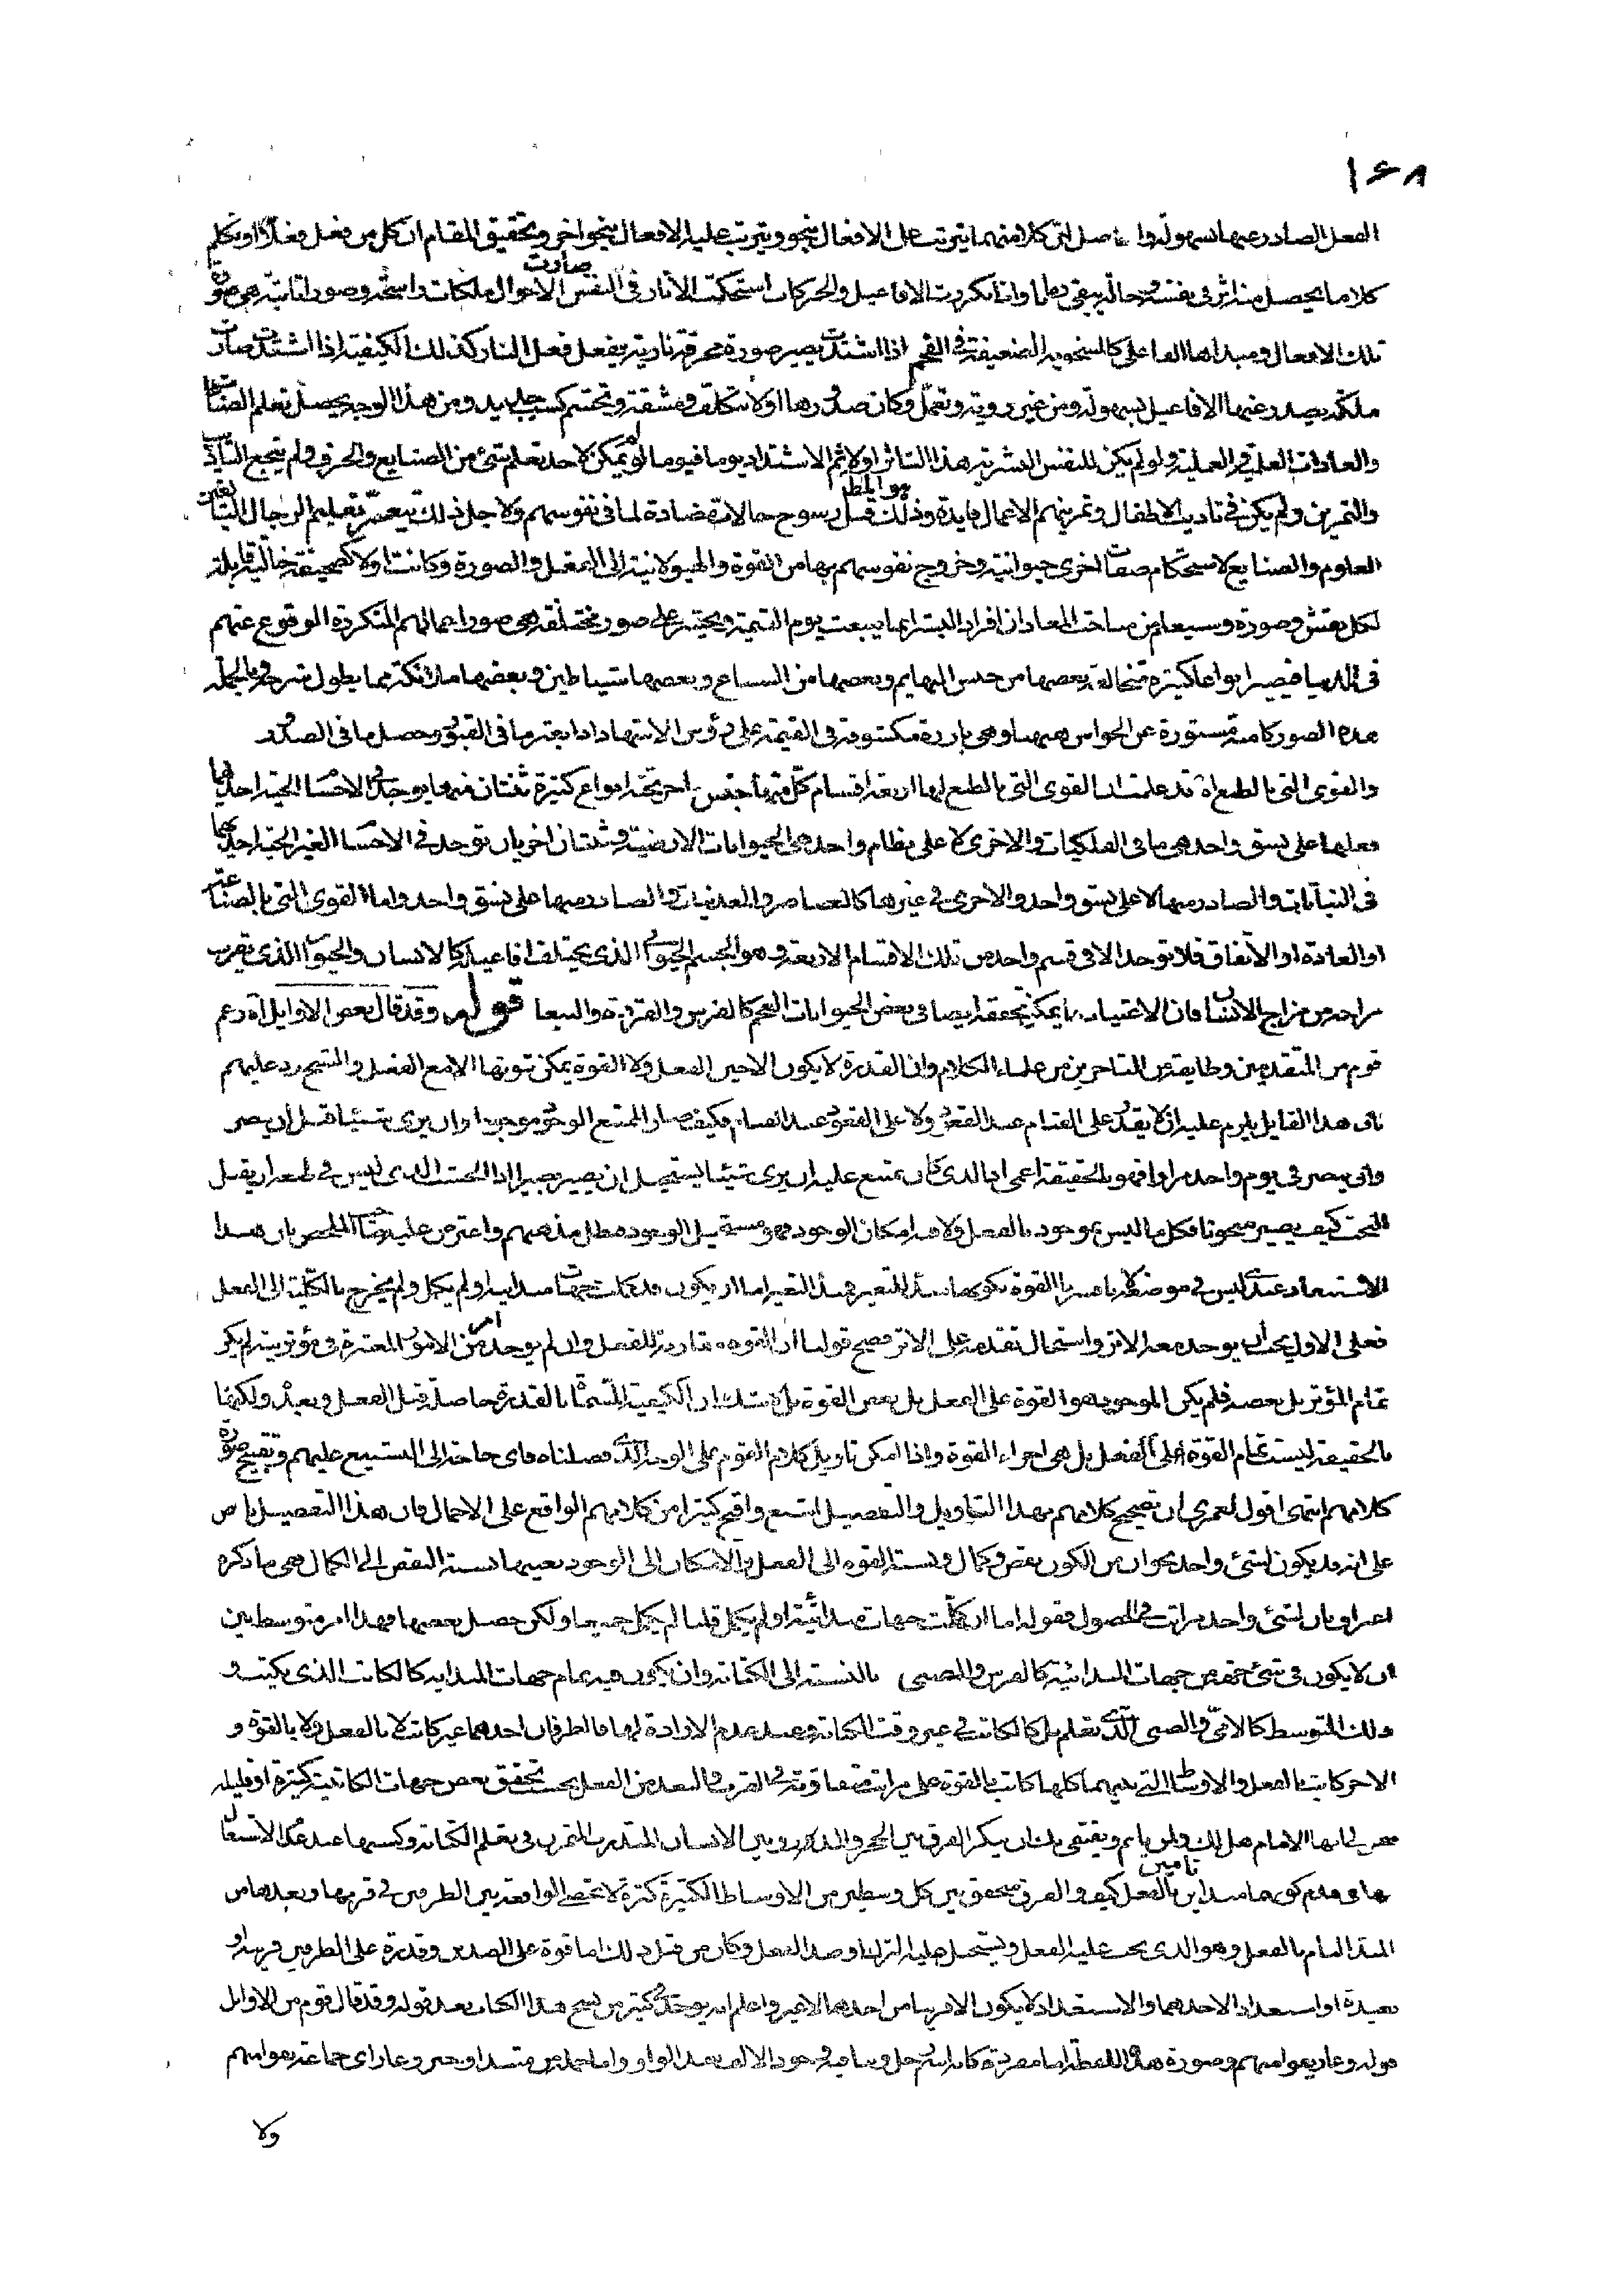 ١٦٨
الفعل الصادر عنها بسهولة والحاصل ان كلا منهما يترتب على الافعال بنحو ويترتب عليه الافعال بنحو اخر وتحقيق المقام ان كل من فعل فعلا او تكلم
كلاما يحصل منه اثر في نفسه وحالة يبقى زمانا واذا تكررت الافاعيل والحركات استحكمت الآثار في النفس صارت الاحوال ملكات راسخة وصورا ثابتة هي صورة
تلك الافعال ومبداها الفاعلى كالسخونة الضعيفة في الفحم اذا اشتدت يصير صورة محرقة نارية يفعل فعل النار كذلك الكيفية اذا اشتدت صارت
ملكة يصدر عنها الافاعيل بسهولة ومن غير روية وتعمل وكان صدورها اولا بتكلف ومشقة وتجشم كسب جديد ومن هذا الوجه يحصل تعلم الصناعات
والعادات العلمية والعملية ولو لم يكن للنفس البشرية هذا التاثر اولا ثم الاشتداد يوما فيوما لم يمكن لاحد تعلم شئ من الصنايع والحرف ولم ينجع التاديب
والتمرين ولم يكن في تاديب الاطفال وتمرينهم الاعمال فايدة وذلك قبل رسوخ حالات مضادة لما في نفوسهم ولاجل ذلك يتعسر تعليم الرجال البالغين
العلوم والصنايع لاستحكام صفات اخرى حيوانية وخروج نفوسهم بها من القوة والهيولانية الى الفعل والصورة وكانت اولا كصحيفة خالية قابلة
لكل نقش وصورة وسيعلم من مباحث المعاد ان افراد البشر انما يبعث يوم القيمة ويحشر على صور مختلفة هي صور اعمالهم المتكررة الوقوع عنهم
في الدنيا فيصير انواعا كثيرة متخالفة بعضها من جنس البهايم وبعضها من السباع وبعضها شياطين وبعضها ملائكة مما يطول شرحه وبالجملة
هذه الصور كامنة مستورة عن الحواس ههنا وهي بارزة مكشوفة في القيمة على رؤس الاشهاد اذا بعثر ما في القبور وحصل ما في الصدور
والقوى التي بالطبع اه قد علمت ان القوى التي بالطبع لها اربعة اقسام كل منها جنس اخر تحته انواع كثيرة ثنتان منها يوجد في الاجسام الحية احديهما
فعلها على نسق واحد هي ما في الفلكيات والاخرى لا على نظام واحد هي الحيوانات الارضية وثنتان اخريان توجد في الاجسام الغير الحية احديهما
في النباتات والصادر منها لا على نسق واحد والاخرى في غيرها كالعناصر والمعدنيات والصادر منها على نسق واحد واما القوى التي بالصناعة
او العادة او الاتفاق فلا توجد الا في قسم واحد من تلك الاقسام الاربعة وهو الجسم الحيواني الذي يختلف افاعيله كالانسان والحيوان الذي يقرب
مزاجه من مزاج الانسان فان الاعتياد مما يمكن تحققه ايضا في بعض الحيوانات العجم كالفرس والقردة والببغا قوله وقد قال بعض الاوايل اه زعم
قوم من المتقدمين وطايفة من المتاخرين من علماء الكلام وان القدرة لا يكون الا حين الفعل ولا القوة يمكن ثبوتها الا مع الفعل والشيخ رد عليهم
بان هذا القايل يلزم عليه ان لا يقدر على القيام عند القعود ولا على القعود عند القيام فكيف صار الممتنع الوجود موجودا وان يرى شيئا قبل ان يبصر
وان يبصر في يوم واحد مرارا فهو بالحقيقة اعمى اذ الذي كان يمتنع عليه ان يرى شيئا يستحيل ان يصير بصيرا اذ الخشب الذي ليس في طبعه ان يقبل
النحت كيف يصير منحوتا فكل ما ليس بموجود بالفعل ولا فيه امكان الوجود فهو مستحيل الوجود فبطل مذهبهم واعترض عليه صاحب الملخص بان هذا
الاستبعاد عندي ليس في موضعه لانا فسرنا القوة بكونها مبدأ للتغير فمبدأ التغير اما ان يكون قد كملت جهات مبدئيته او لم يكمل ولم يخرج بالكلية الى الفعل
فعلى الاول يجب ان يوجد معه الاثر واستحال تقدمه على الاثر فصح قولنا ان القوة مقارنة للفعل وان لم يوجد امر من الامور المعتبرة في مؤثريته لم يكن
تمام المؤثر بل بعضه فلم يكن الموجود هو القوة على الفعل بل بعض القوة بلا شك ان الكيفية المسماة بالقدرة حاصلة قبل الفعل وبعده ولكنها
بالحقيقة ليست تمام القوة على الفعل بل هي اجزاء القوة واذا امكن تاويل كلام القوم على الوجه الذي فصلناه فاى حاجة الى التشنيع عليهم وتقبيح صورة
كلامهم انتهى اقول لعمري ان تصحيح كلامهم بهذا التاويل والتفصيل اشنع واقبح كثيرا من كلامهم الواقع على الاجمال فان هذا التفصيل ناص
على انه قد يكون لشئ واحد نحوان من الكون نقص وكمال ونسبة القوة الى الفعل والامكان الى الوجود بعينها نسبة النقص الى الكمال فهي ما ذكره
اعترف بان لشئ واحد مراتب في الحصول فقوله اما ان كملت جهات مبدئيته او لم يكمل قلنا لم يكمل جميعا ولكن حصل بعضها فهذا امر متوسط بين
ان لا يكون في شئ حقه من جهات المبدائية كالفرس والصبى بالنسبة الى الكتابة وان يكون فيه تمام جهات المبداية كالكاتب الذي يكتب و
ذلك المتوسط كالامي والصبي الذي تعلم بل كالكاتب في غير وقت الكتابة وعند عدم الارادة لها فالطرفان احدهما غير كاتب لا بالفعل ولا بالقوة و
الاخر كاتب بالفعل والاوساط التي بينهما كلها كاتب بالقوة على مراتب متفاوتة في القرب والبعد من الفعل بحسب تحقق بعض جهات الكاتبية كثيرة او قليلة
الانسان المتدرب المتمرن في تعلم الكتابة وكسبها عند عدم الاشتغال
بها في عدم كونهما مبداين تامين بالفعل كيف والفرق متحقق بين كل وسطين من الاوساط الكثيرة كثرة لا تحصى الواقعة بين الطرفين في قربها وبعدها من
المبدا التام بالفعل وهو الذي يجب عليه الفعل ويستحيل عليه الترك او ضد الفعل وكان من قبل ذلك اما قوة على الضدين وقدرة على الطرفين قريبة او
بعيدة او استعدادا لاحدهما والاستعداد لا يكون الا قريبا من احدهما لا غير واعلم انه يوجد في كثير من نسخ هذا الكتاب بعد قوله وقد قال قوم من الاوايل
قوله وغاريقوا منهم وصورة هذه اللفظة اما مفردة كانه اسم رجل
ولا